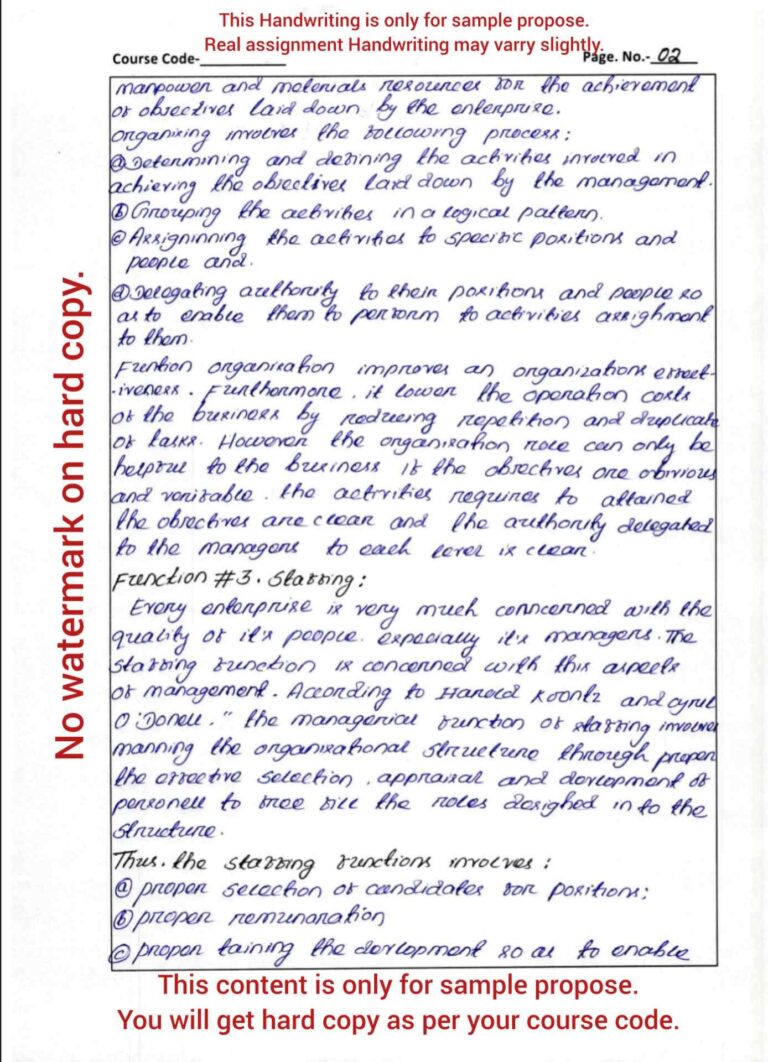 This Handwriting is only for sample propose.
Real assignment Handwriting may varry slightly.
Course Code-
Page. No.- 02
manpower and materials resources for the achievement
of objectives laid down by the enterprise.
organising involves the following process:
(a) Determining and defining the activities involved in
achieving the objectives laid down by the management.
(b) Grouping the activities in a logical pattern.
(c) Assigninning the activities to specific positions and
people and.
(d) Delegating authority to their positions and people so
as to enable them to perform to activities assighment
to them.
Funtion organisation improves an organizations effect-
-iveness. Furthermore, it lower the operation costs
of the business by reducing repetition and duplicate
of tasks. However the organisation role can only be
helpful to the business if the objectives are obvious
and verifable. the activities requires to attained
the objectives are clear and the authority delegated
to the managers to each level is clear.
Function #3. Staffing:
Every enterprise is very much conncerned with the
quality of it's people. especially it's managers. The
staffing function is concerned with this aspects
of management. According to Harold Koontz and cyril
O'Donell. " the managerial function of staffing involves
manning the organisational structure through proper
the effective selection, appraisal and devlopment of
personell to free fill the roles desighed in to the
structure.
Thus. the staffing functions involves:
(a) proper selection of candidates for positions;
(b) proper remunaration
(c) proper taining the devlopment so as to enable
No watermark on hard copy.
This content is only for sample propose.
You will get hard copy as per your course code.